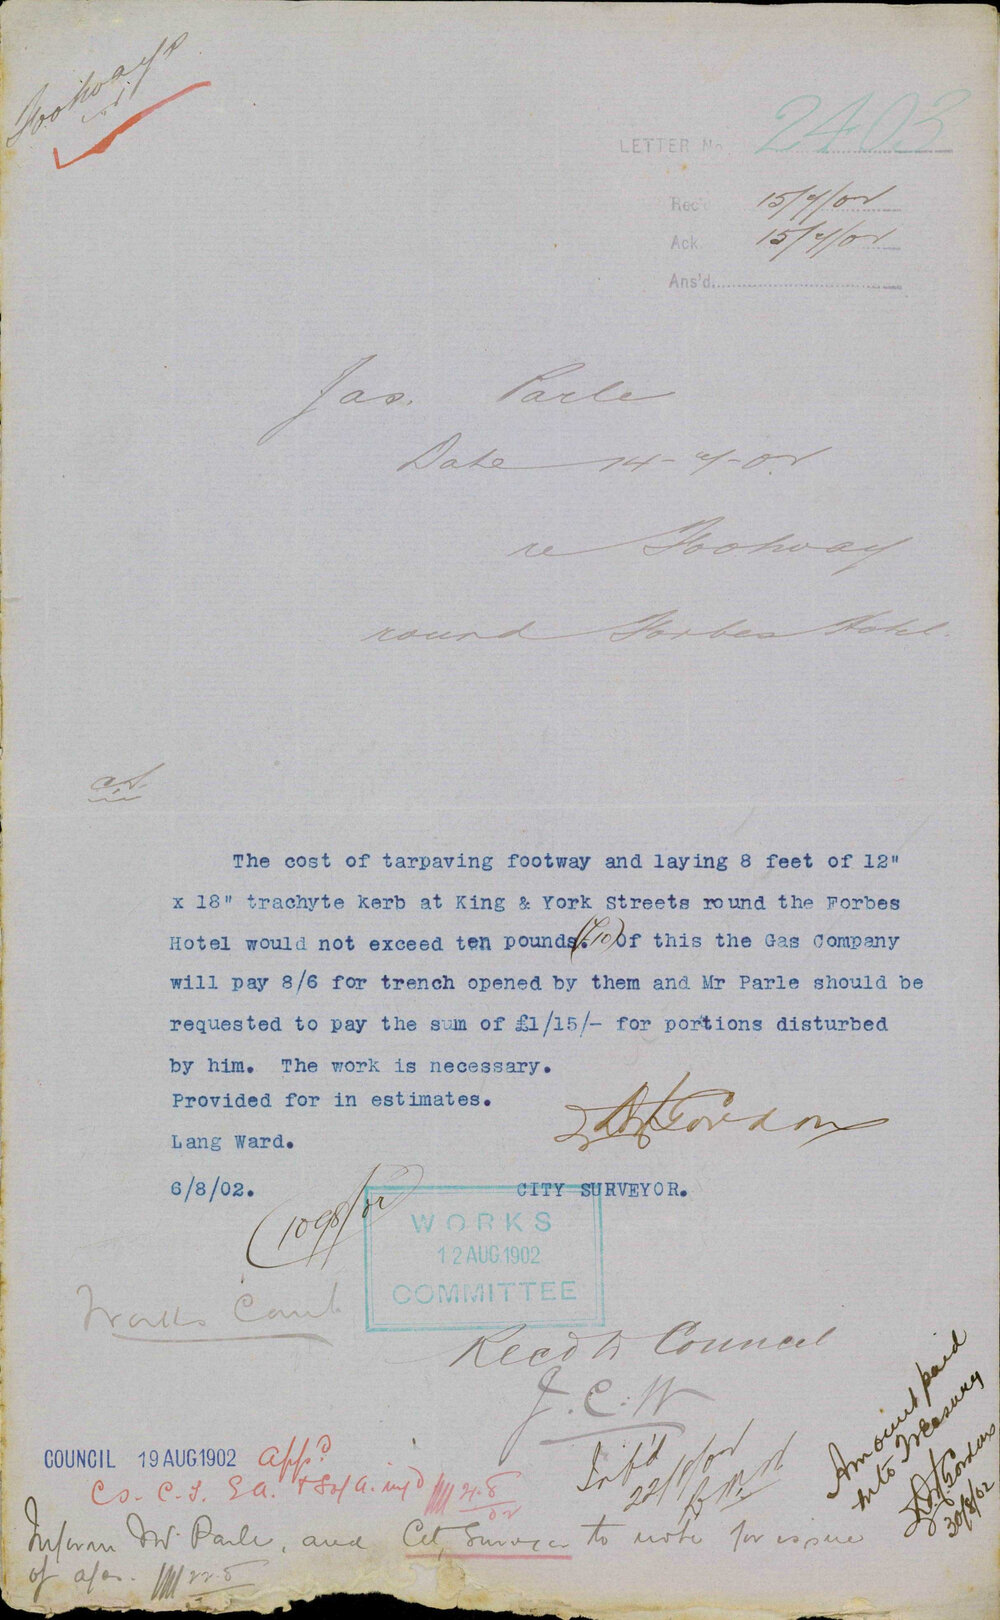 Footways
LETTER No. 2403
Rec'd 15/7/02
Ack 15/7/02
Ans'd
Jas. Parle
Date 14-7-02
re Footway
round Forbes Hotel.
C.S.
The cost of tarpaving footway and laying 8 feet of 12"
x 18" trachyte kerb at King & York Streets round the Forbes
Hotel would not exceed ten pounds. (£10) Of this the Gas Company
will pay 8/6 for trench opened by them and Mr Parle should be
requested to pay the sum of £1/15/- for portions disturbed
by him. The work is necessary.
Provided for in estimates.
Lang Ward.
Gordon
6/8/02. CITY SURVEYOR.
(1098/02)
WORKS
12 AUG. 1902
COMMITTEE
Works Comt
Recd to Council
J.C.W
COUNCIL 19 AUG 1902 appd
Inf'd
22/8/02
Amount paid
into Treasury
Gordon
30/8/02
Inform Mr Parle, and City Surveyor to note for issue
of a/cs.